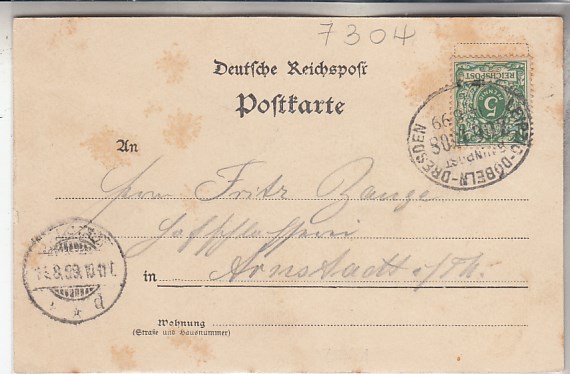 7304
Deutsche Reichspost
Postkarte
REICHSPOST
5
LEIPZIG-DÖBELN-DRESDEN
BAHNPOST
An
Herrn Fritz Bange
Hofschlosserei
in Arnstadt i/Th.
8.99.10-11
Wohnung
(Straße und Hausnummer)